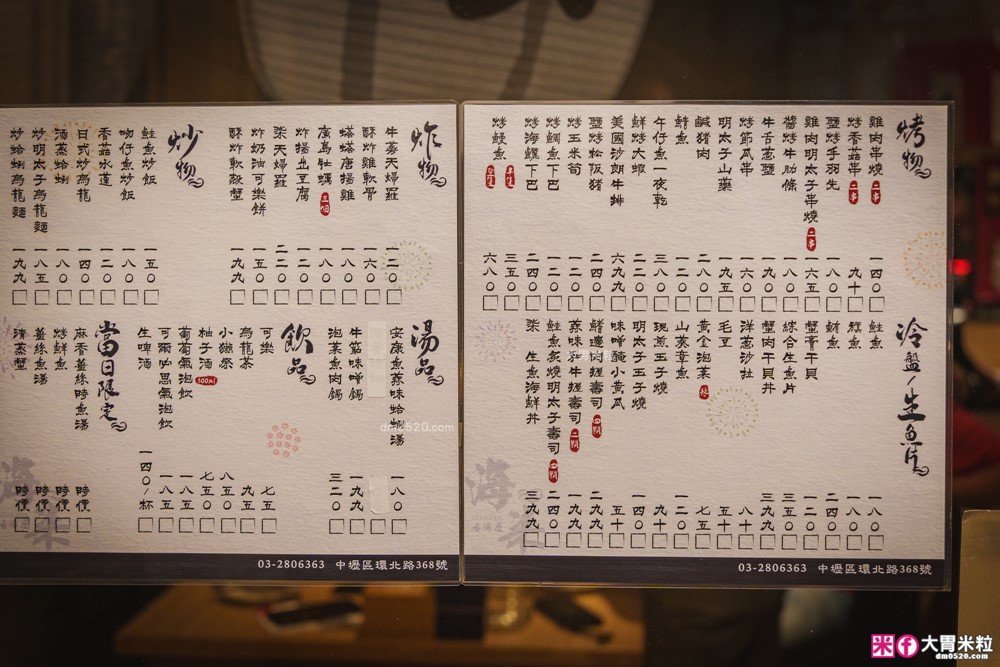 烤物
雞肉串燒 二串 一四〇
烤香菇串 二串 九十
鹽烤手羽先 一八〇
雞肉明太子串燒 二串 一六五
醬烤牛肋條 一八〇
牛舌蔥鹽 一九〇
烤節瓜串 一六〇
明太子山藥 一九五
鹹豬肉 二八〇
鮮魚 一二〇
午仔魚一夜乾 三八〇
鮮烤大蝦 二二〇
美國沙朗牛排 六九九
鹽烤松阪豬 二四〇
烤玉米筍 一二〇
烤鯛魚下巴 一二〇
烤海鱺下巴 二四〇
烤鰻魚 半隻 三五〇
六八〇
冷盤/生魚片
鮭魚 一八〇
魚 一八〇
鮪魚 二四〇
蟹膏干貝 一二〇
綜合生魚片 三五〇
蟹肉干貝丼 三九九
洋蔥沙拉 八十
毛豆 五十
黃金泡菜 七五
山葵章魚 一二〇
現煎玉子燒 九十
明太子玉子燒 一四〇
味噌醃小黃瓜 五十
鰭邊肉握壽司 四顆 二九九
蔥味炙牛握壽司 二顆 一九九
鮭魚炙燒明太子壽司 四顆 二四〇
柒 生魚海鮮丼 三九九
03-2806363 中壢區環北路368號
炸物
牛蒡天婦羅 一二〇
酥炸雞軟骨 一六〇
蒜唐揚雞 一八〇
廣島牡蠣 三個 一八〇
炸揚出豆腐 一二〇
柒天婦羅 二二〇
炸奶油可樂餅 一五〇
酥炸軟殼蟹 一九九
炒物
鮭魚炒飯 一五〇
吻仔魚炒飯 一八〇
香菇水蓮 一二〇
日式炒烏龍 一四〇
酒蒸蛤蜊 一八〇
炒明太子烏龍麵 一八五
炒蛤蜊烏龍麵 一九九
湯品
安康魚蒜味蛤蜊湯 一八〇
牛筋味噌鍋 一九九
泡菜魚肉鍋 三二〇
飲品
可樂 七五
烏龍茶 九五
小獺祭 八五〇
柚子酒 300ml 七五〇
葡萄氣泡飲 一八五
可爾必思氣泡飲 一八五
生啤酒 一四〇/杯
當日限定
麻香薑絲時魚湯 時價
烤鮮魚 時價
薑絲魚湯 時價
清蒸蟹 時價
03-2806363 中壢區環北路368號
dm0520.com
大胃米粒
dm0520.com